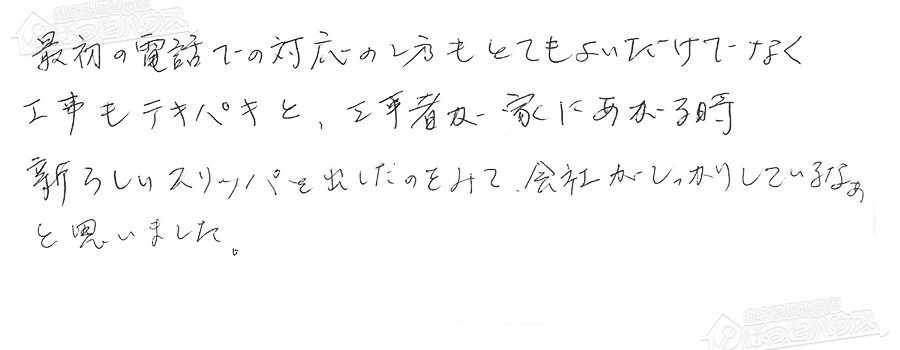 最初の電話での対応の時もとてもよいだけでなく
工事もテキパキと、工事者が家にあがる時
新らしいスリッパを出したのをみて、会社がしっかりしているなぁ
と思いました。
住宅設備専門店
ほっとハウス